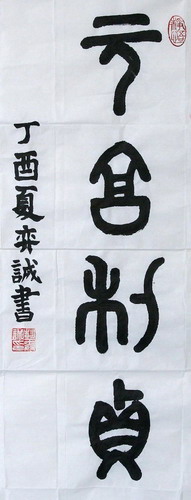 元亨利貞
丁酉夏奕誠書